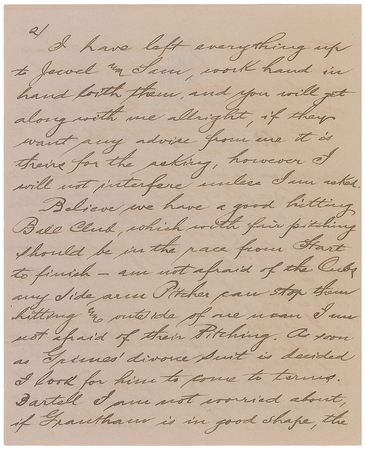 2/
I have left everything up
to Jewel & Sam, work hand in
hand with them, and you will get
along with me allright, if they
want any advise from me it is
theirs for the asking, however I
will not interfere unless I am asked.
Believe we have a good hitting
Ball Club, which with fair pitching
should be in the race from Start
to finish - am not afraid of the Cubs
any Side arm Pitcher can stop them
hitting & outside of one man I am
not afraid of their Pitching. As soon
as Grimes' divorce Suit is decided
I look for him to come to terms.
Bartell I am not worried about,
if Grantham is in good shape, the